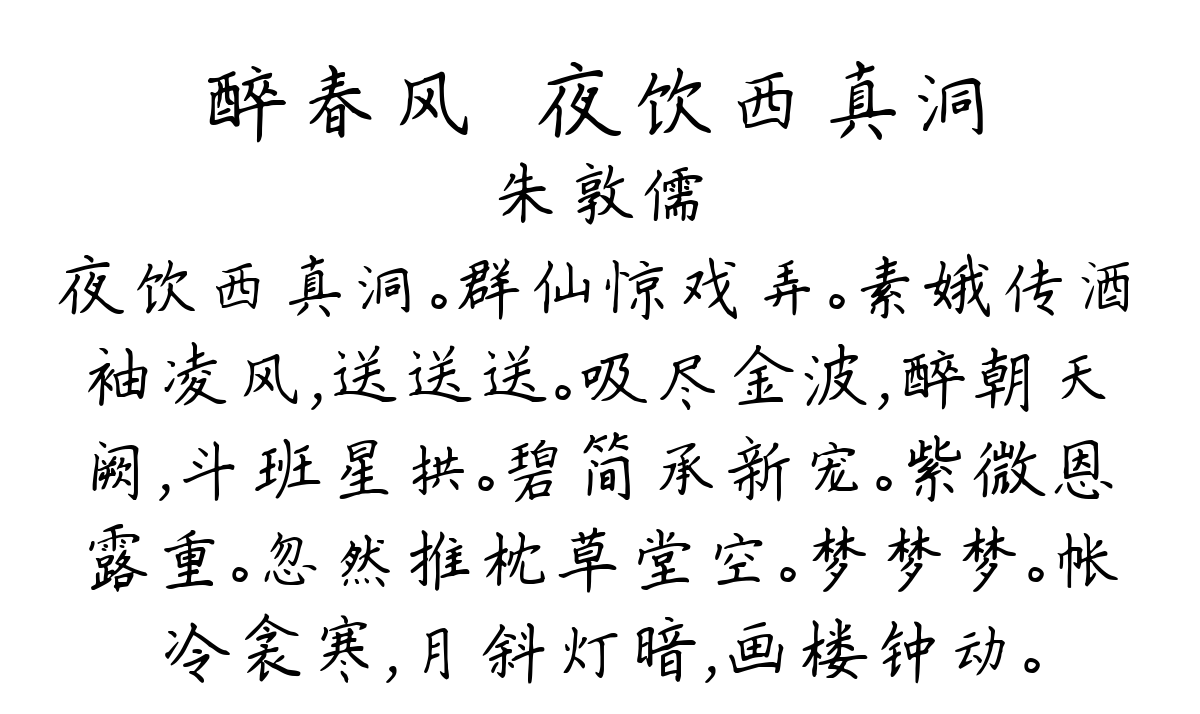 醉春风 夜饮西真洞
朱敦儒
夜饮西真洞。群仙惊戏弄。素娥传酒
袖凌风,送送送。吸尽金波,醉朝天
阙,斗班星拱。碧简承新宠。紫微恩
露重。忽然推枕草堂空。梦梦梦。帐
冷衾寒,月斜灯暗,画楼钟动。